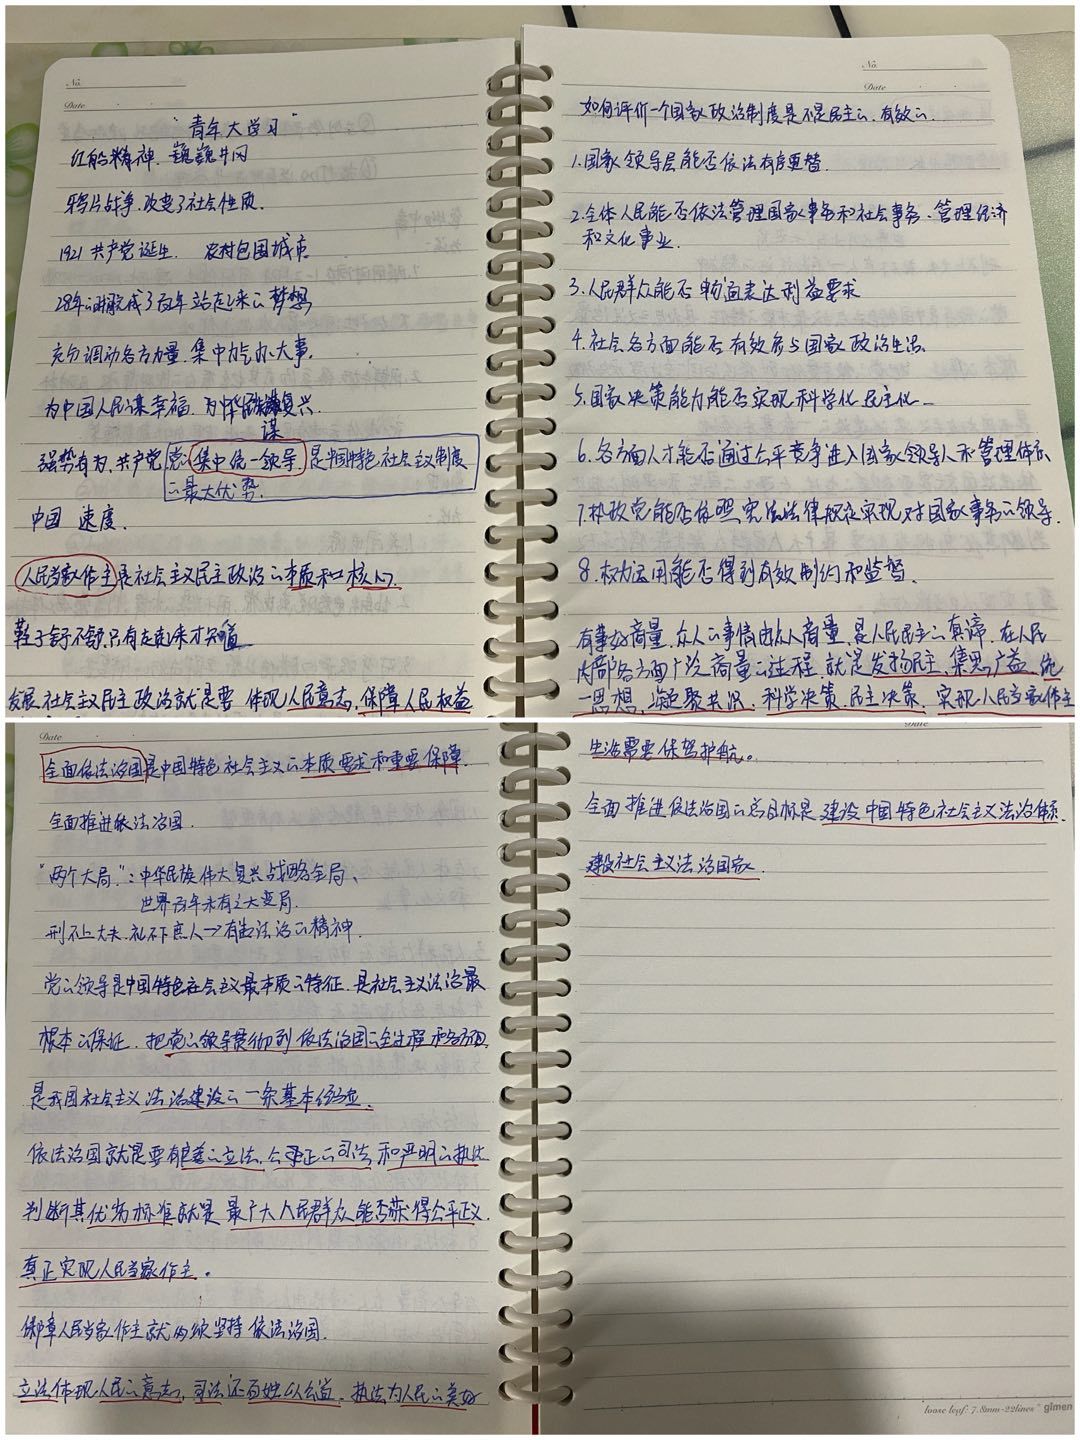 No.
Date
"青年大学习"
红船精神. 巍巍井冈
鸦片战争.改变了社会性质.
1921 共产党诞生. 农村包围城市
28年 完成了百年 站起来的梦想
充分调动各方力量.集中力气办大事.
为中国人民谋幸福.为中华民族 复兴.
谋
强势有为.共产党 党的集中统一领导 是中国特色社会主义制度
的最大优势.
中国 速度.
人民当家作主是社会主义民主政治的本质和核心.
鞋子舒不舒 只有走起来才知道
发展社会主义民主政治就是要 体现人民意志,保障人民权益
No.
Date
如何评价一个国家政治制度是不是民主的.有效的.
1.国家领导层能否依法有序更替
2.全体人民能否依法管理国家事务和社会事务.管理经济
和文化事业.
3.人民群众能否畅通表达利益要求
4.社会各方面能否有效参与国家政治生活.
5.国家决策能力能否实现科学化 民主化.
6.各方面人才能否通过公平竞争进入国家领导人和管理体系
7.执政党能否依照宪法法律规定实现对国家事务的领导.
8.权力运用能否得到有效制约和监督.
有事好商量.众人的事情由众人商量.是人民民主的真谛.在人民
内部各方面广泛商量的过程.就是发扬民主.集思广益.统
一思想.凝聚共识.科学决策.民主决策.实现人民当家作主
Date
全面依法治国是中国特色社会主义的本质要求和重要保障.
全面推进依法治国.
"两个大局":中华民族伟大复兴战略全局、
世界百年未有之大变局.
刑不上大夫.礼不下庶人→有 法治的精神.
党的领导是中国特色社会主义最本质的特征.是社会主义法治最
根本的保证.把党的领导贯彻到依法治国的全过程和各方面
是我国社会主义法治建设的一条基本经验.
依法治国就是要有良善的立法.公平正的司法和严明的执法
判断其优劣标准就是最广大人民群众能否获得公平正义.
真正实现人民当家作主.
保障人民当家作主就必须坚持依法治国.
立法体现人民的意志,司法还百姓以公道.执法为人民的美好
Date
生活需要保驾护航。
全面推进依法治国的总目标是建设中国特色社会主义法治体系.
建设社会主义法治国家.
loose leaf: 7.8mm-22lines glmen